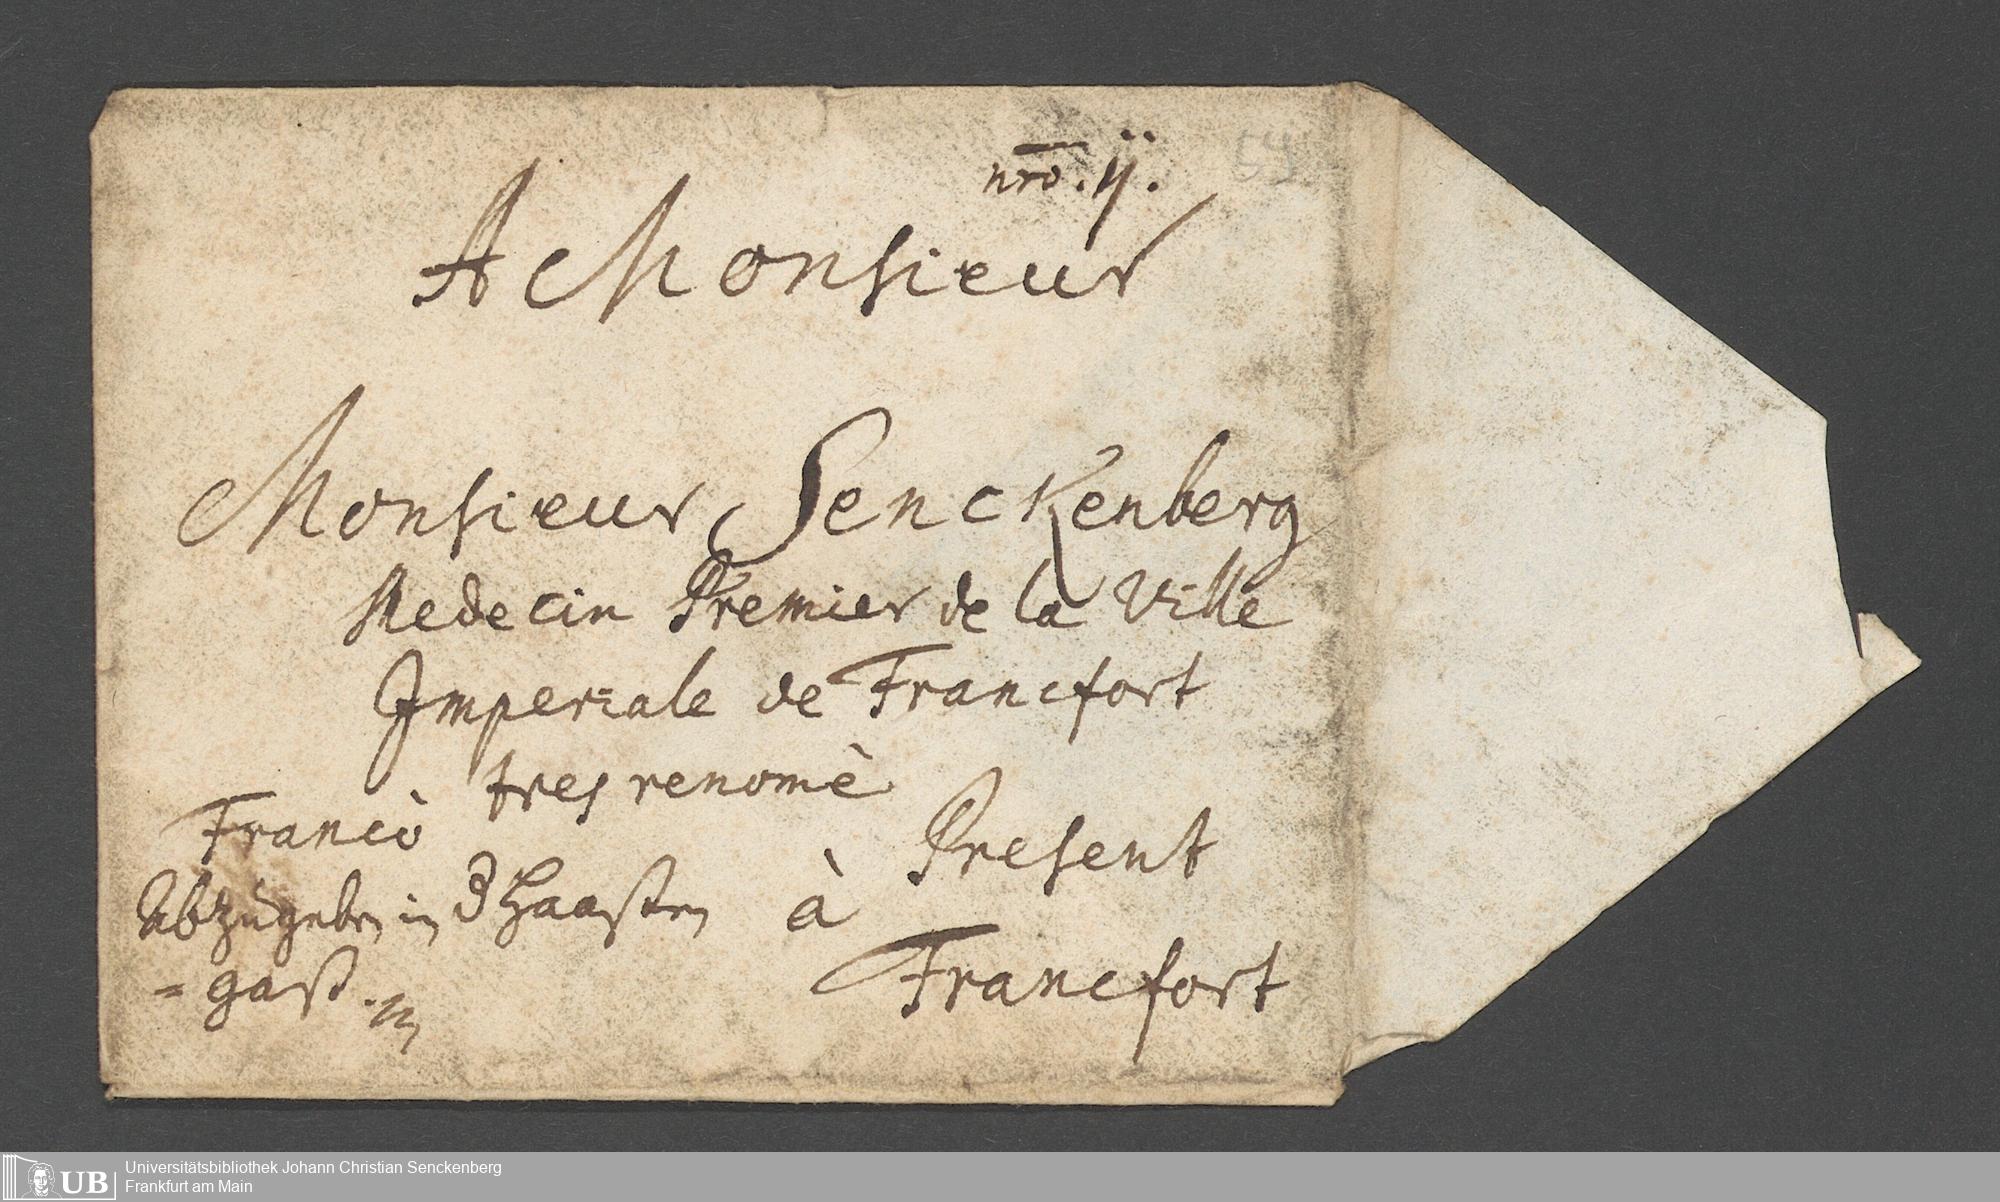 nrō. ij.
59
A Monsieur
Monsieur Senckenberg
Medecin Premier de la Ville
Imperiale de Francfort
tres renomè
Francò
Present
Abzugeben in 3 Haaßen
à
=gaß.
Francfort
Universitätsbibliothek Johann Christian Senckenberg
Frankfurt am Main
UB